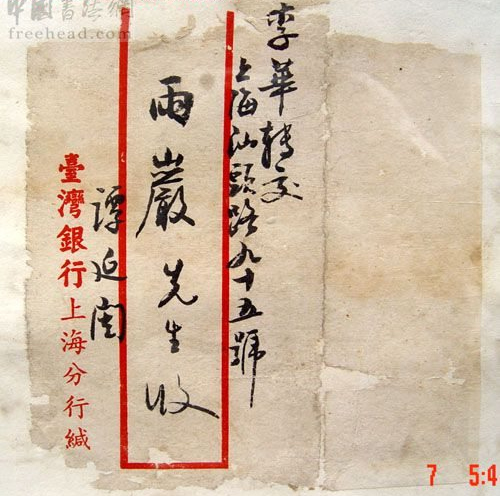 中國書法網
freehead.com
李華轉交
上海汕頭路九十五號
雨巖先生收
譚延闓
臺灣銀行上海分行緘
7 5:4